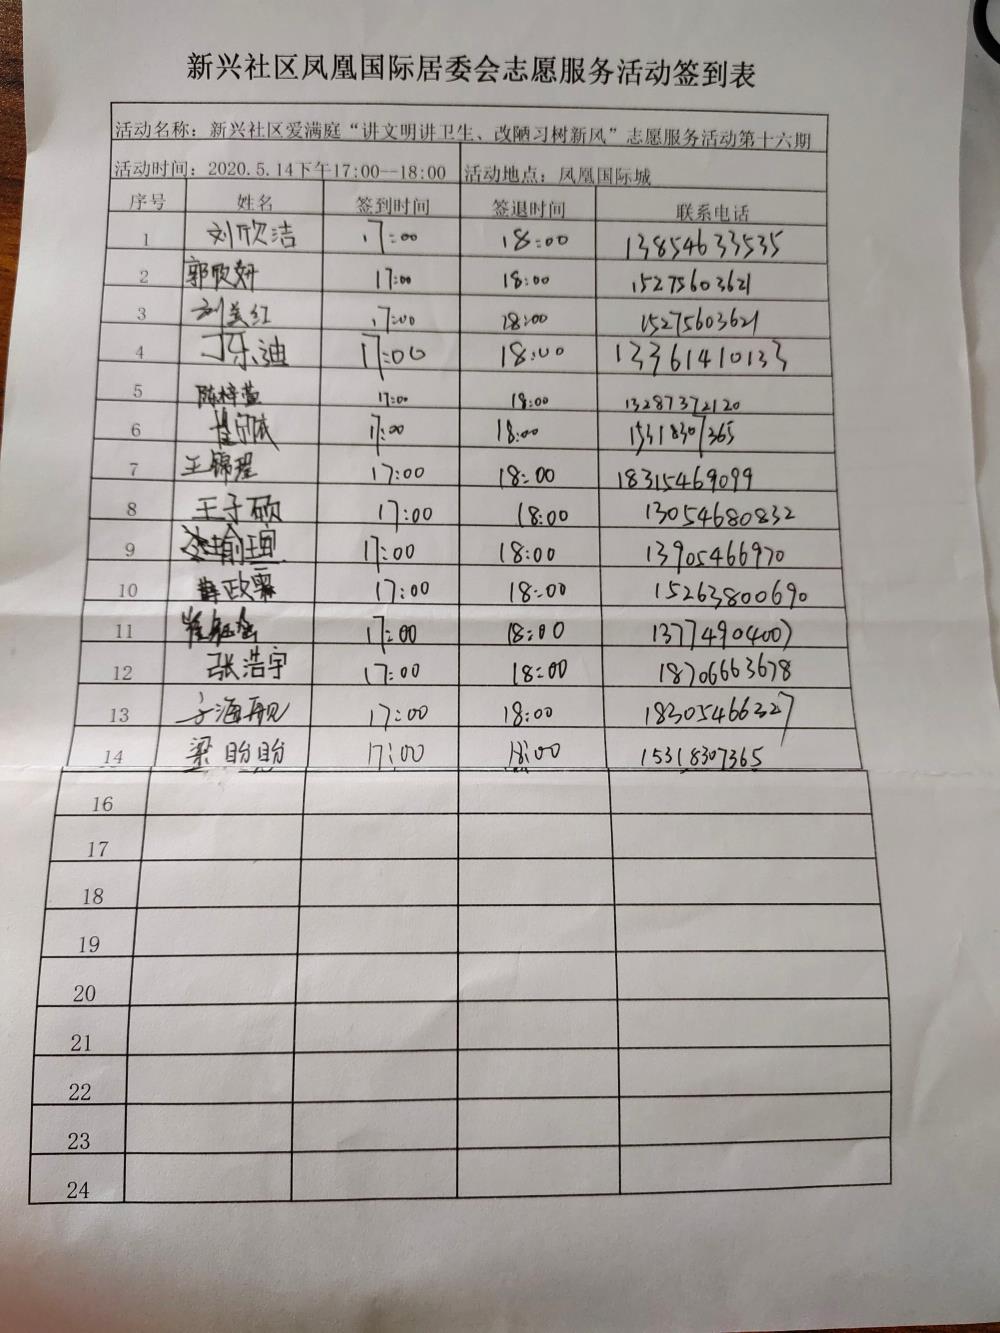 新兴社区凤凰国际居委会志愿服务活动签到表
活动名称：新兴社区爱满庭“讲文明讲卫生、改陋习树新风”志愿服务活动第十六期
活动时间：2020.5.14下午17:00--18:00 活动地点：凤凰国际城
序号 姓名 签到时间 签退时间 联系电话
1 刘欣洁 17:00 18:00 13854633535
2 郭欣妍 17:00 18:00 15275603621
3 刘美红 17:00 18:00 15275603621
4 丁乐迪 17:00 18:00 13361410133
5 陈梓萱 17:00 18:00 13287372120
6 17:00 18:00 15318307365
7 王锦瑆 17:00 18:00 18315469099
8 王子硕 17:00 18:00 13054680832
9 17:00 18:00 13905466970
10 薛政霖 17:00 18:00 15263800690
11 17:00 18:00 13774904007
12 张浩宇 17:00 18:00 18706663678
13 于海舰 17:00 18:00 18305466327
14 梁盼盼 17:00 18:00 15318307365
16
17
18
19
20
21
22
23
24